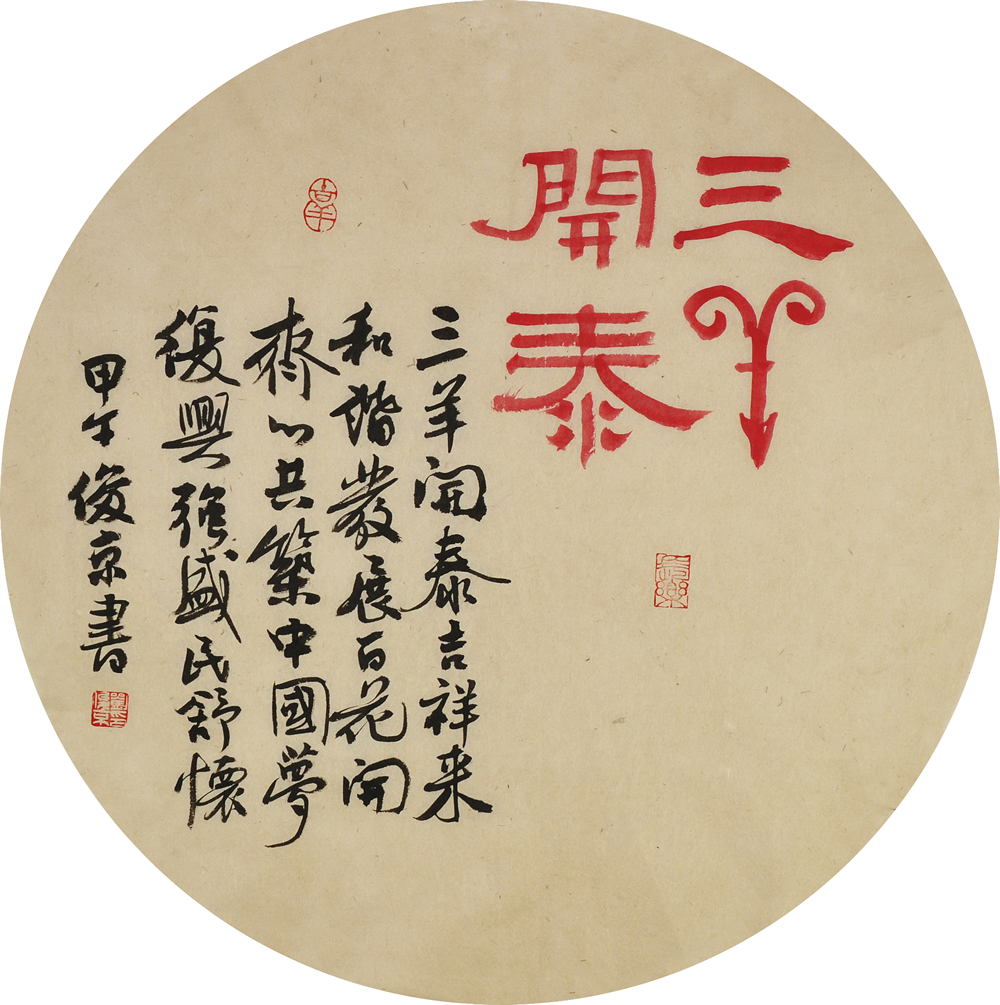 三羊
開泰
三羊開泰吉祥来
和諧發展百花開
齊心共築中國夢
復興強盛民舒懷
甲午俊京書